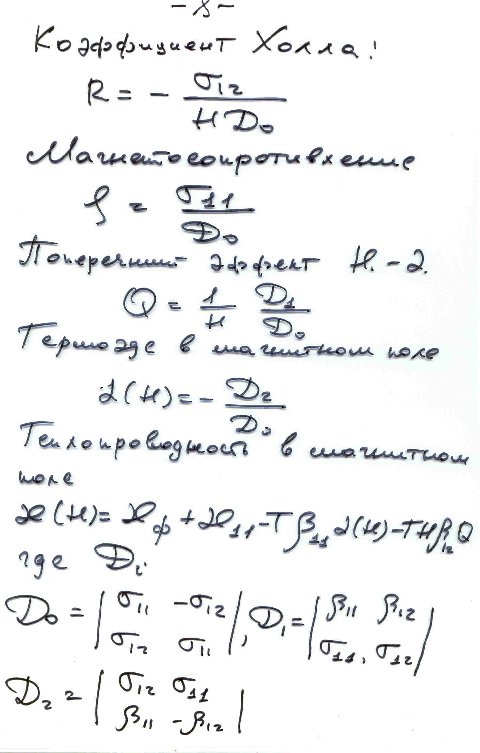 - 8 -
Коэффициент Холла:
R = - σ₁₂ / (H D₀)
Магнетосопротивление
ρ = σ₁₁ / D₀
Поперечный эффект Н.-Э.
Q = 1/H D₁/D₀
Термоэдс в магнитном поле
α(H) = - D₂/D₀
Теплопроводность в магнитном
поле
ϰ(H) = ϰф + ϰ₁₁ - Tβ₁₁α(H) - THβ₁₂Q
где Dᵢ
D₀ = | σ₁₁ -σ₁₂ ; σ₁₂ σ₁₁ |, D₁ = | β₁₁ β₁₂ ; σ₁₁, σ₁₂ |
D₂ = | σ₁₂ σ₁₁ ; β₁₁ -β₁₂ |